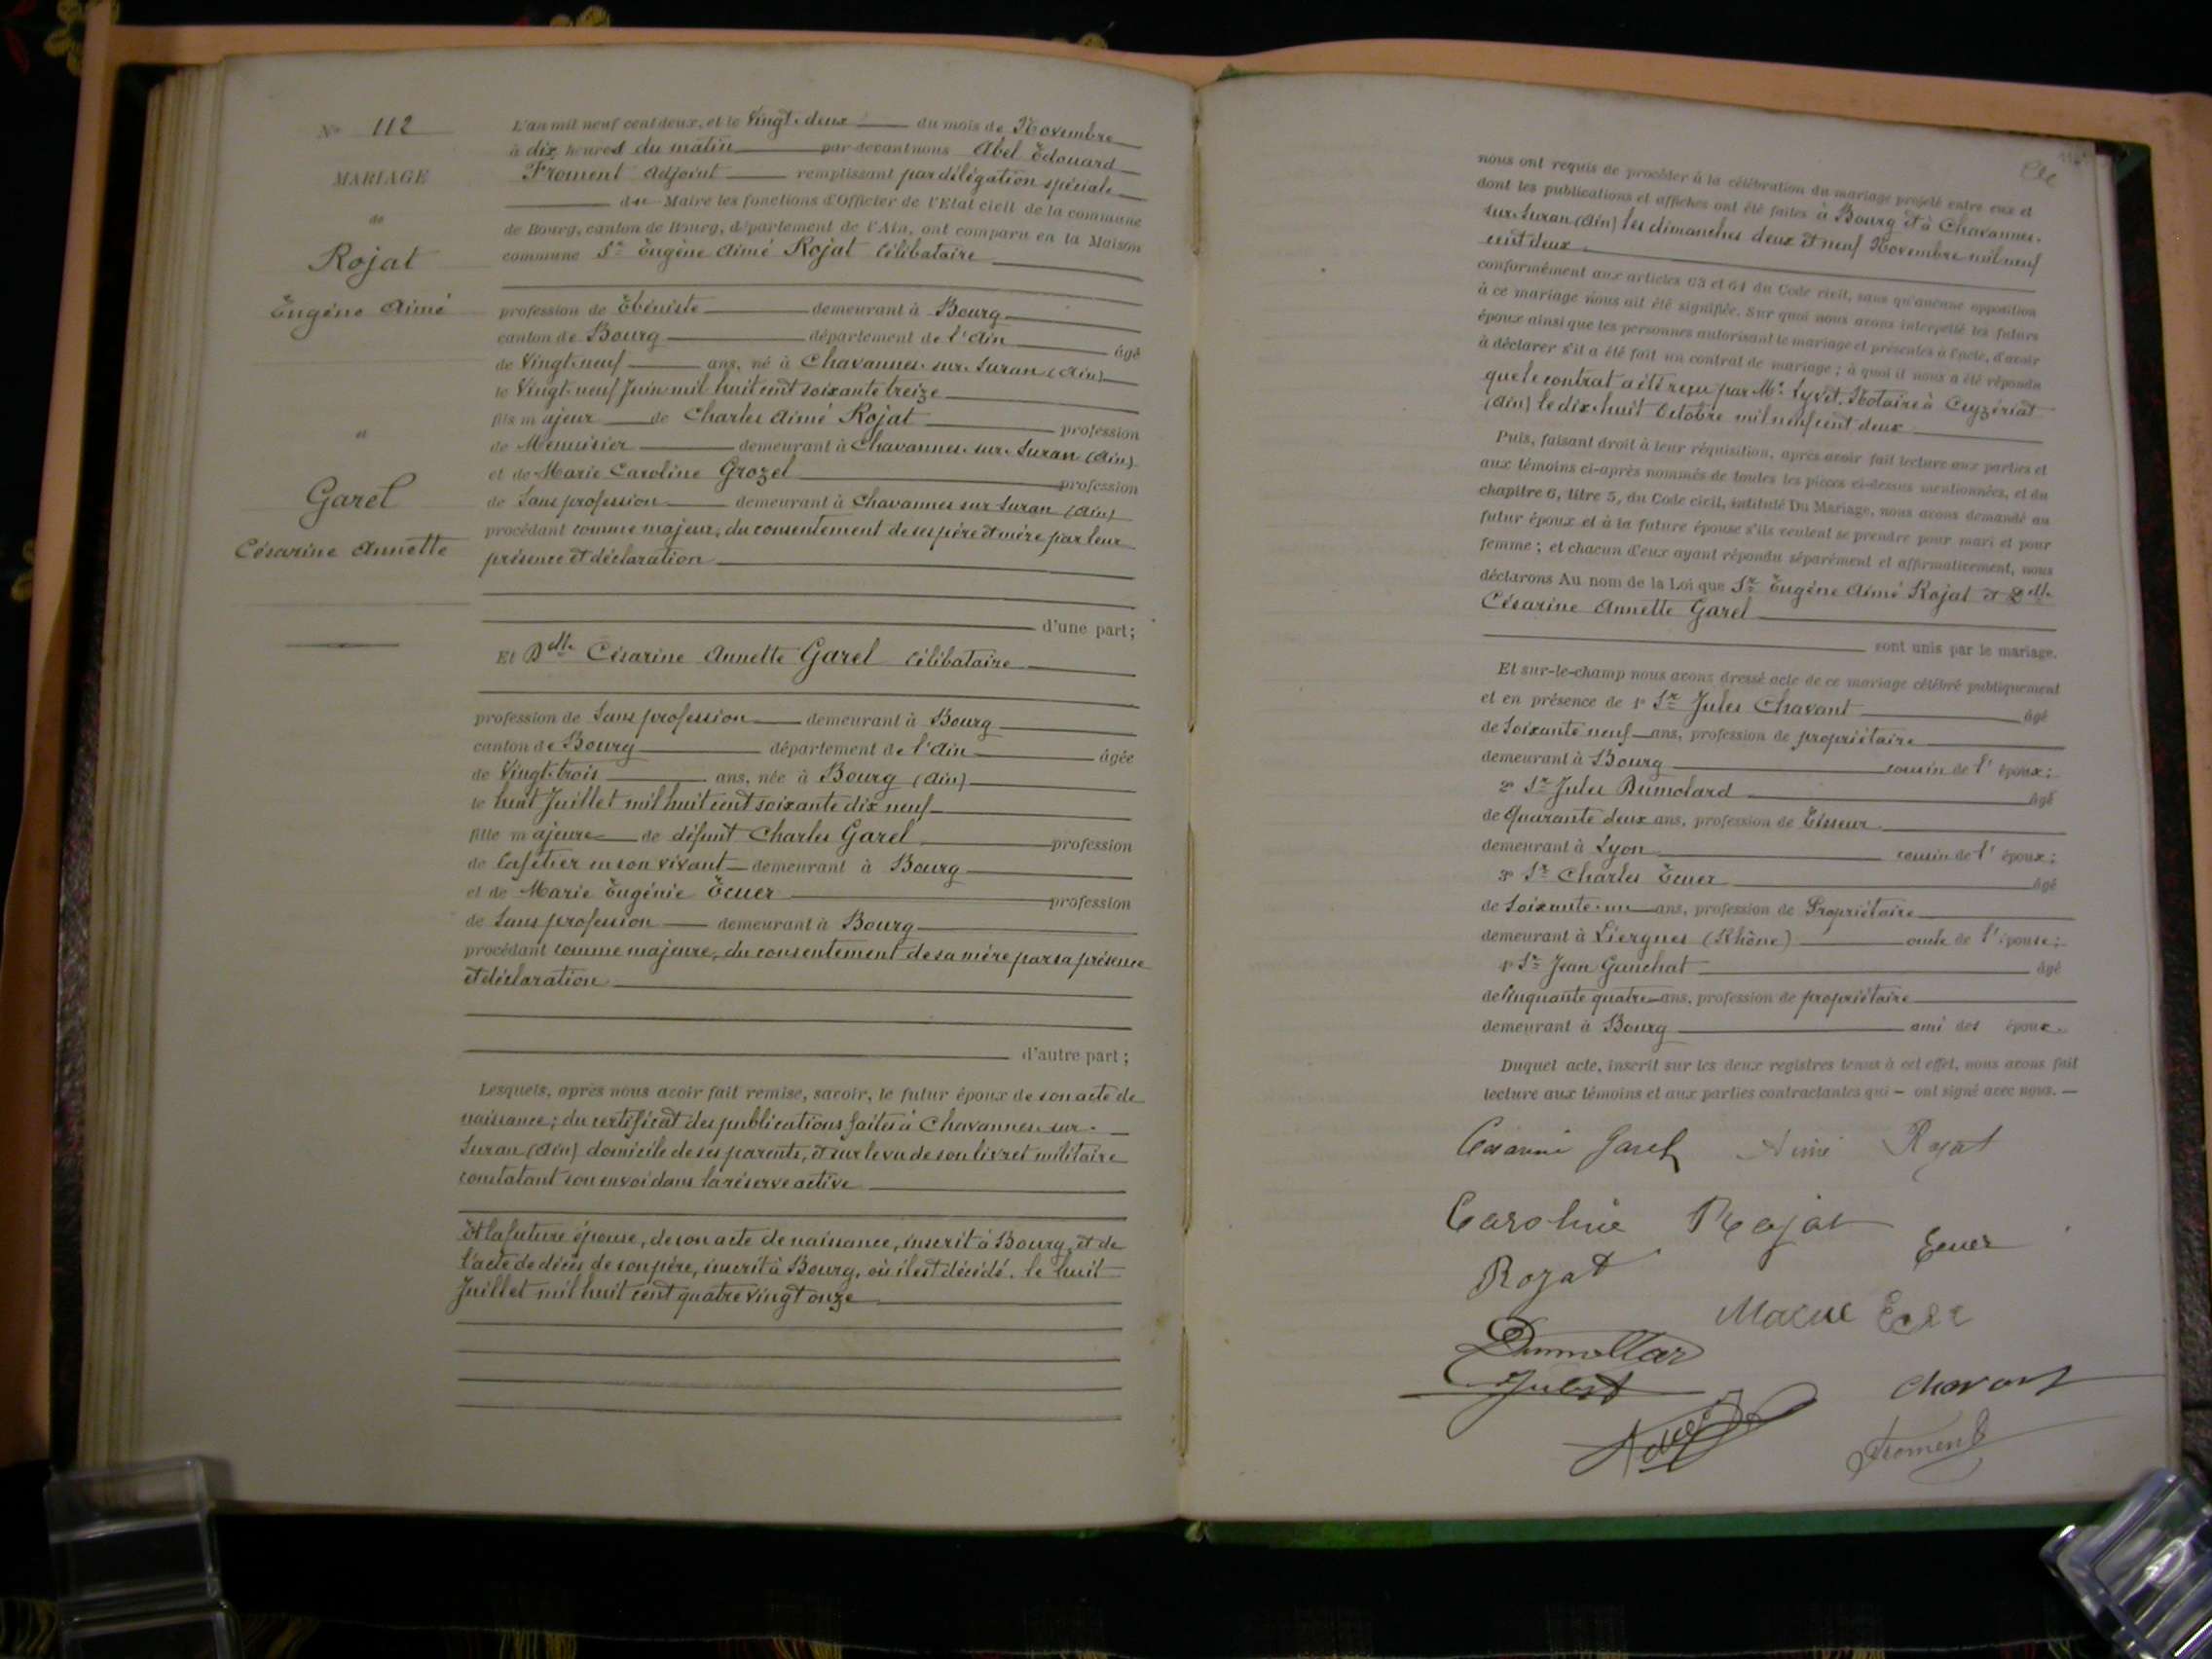 N° 112
MARIAGE
de
Rojat
Eugène Aimé
et
Garel
Césarine Annette
L'an mil neuf cent deux, et le Vingt-deux du mois de Novembre
à dix heures du matin par-devant nous Abel Edouard
Froment Adjoint remplissant par délégation spéciale
du Maire les fonctions d'Officier de l'Etat civil de la commune
de Bourg, canton de Bourg, département de l'Ain, ont comparu en la Maison
commune Sr Eugène Aimé Rojat célibataire
profession de Ebéniste demeurant à Bourg
canton de Bourg département de l'Ain âgé
de Vingt-neuf ans, né à Chavannes-sur-Suran (Ain)
le Vingt-neuf Juin mil huit cent soixante treize
fils majeur de Charles Aimé Rojat profession
de Menuisier demeurant à Chavannes-sur-Suran (Ain)
et de Marie Caroline Grozel profession
de Sans profession demeurant à Chavannes sur Suran (Ain)
procédant comme majeur, du consentement de ses père et mère par leur
présence et déclaration
d'une part;
Et Delle Césarine Annette Garel célibataire
profession de Sans profession demeurant à Bourg
canton de Bourg département de l'Ain âgée
de Vingt-trois ans, née à Bourg (Ain)
le huit Juillet mil huit cent soixante dix neuf
fille majeure de défunt Charles Garel profession
de Cafetier en son vivant demeurant à Bourg
et de Marie Eugénie Ecuer profession
de Sans profession demeurant à Bourg
procédant comme majeure, du consentement de sa mère par sa présence
et déclaration
d'autre part;
Lesquels, après nous avoir fait remise, savoir, le futur époux de son acte de
naissance; du certificat des publications faites à Chavannes-sur-
Suran (Ain) domicile de ses parents, et sur le vu de son livret militaire
constatant son envoi dans la réserve active
Et la future épouse, de son acte de naissance, inscrit à Bourg, et de
l'acte de décès de son père, inscrit à Bourg, où il est décédé, le huit
Juillet mil huit cent quatre vingt onze
nous ont requis de procéder à la célébration du mariage projeté entre eux et
dont les publications et affiches ont été faites à Bourg et à Chavannes-
sur-Suran (Ain) les dimanches deux et neuf Novembre mil neuf
cent deux
conformément aux articles 63 et 64 du Code civil, sans qu'aucune opposition
à ce mariage nous ait été signifiée. Sur quoi nous avons interpellé les futurs
époux ainsi que les personnes autorisant le mariage et présentes à l'acte, d'avoir
à déclarer s'il a été fait un contrat de mariage; à quoi il nous a été répondu
que le contrat a été reçu par Me Lyvet, Notaire à Ceyzériat
(Ain) le dix-huit Octobre mil neuf cent deux
Puis, faisant droit à leur réquisition, après avoir fait lecture aux parties et
aux témoins ci-après nommés de toutes les pièces ci-dessus mentionnées, et du
chapitre 6, titre 5, du Code civil, intitulé Du Mariage, nous avons demandé au
futur époux et à la future épouse s'ils veulent se prendre pour mari et pour
femme; et chacun d'eux ayant répondu séparément et affirmativement, nous
déclarons Au nom de la Loi que Sr Eugène Aimé Rojat et Delle
Césarine Annette Garel
sont unis par le mariage.
Et sur-le-champ nous avons dressé acte de ce mariage célébré publiquement
et en présence de 1° Sr Jules Chavant âgé
de Soixante neuf ans, profession de propriétaire
demeurant à Bourg cousin de l'époux;
2° Sr Jules Dumolard âgé
de Quarante deux ans, profession de Tisseur
demeurant à Lyon cousin de l'époux;
3° Sr Charles Ecuer âgé
de Soixante-un ans, profession de Propriétaire
demeurant à Liergues (Rhône) oncle de l'épouse;
4° Sr Jean Ganchat âgé
de Cinquante quatre ans, profession de propriétaire
demeurant à Bourg ami des époux.
Duquel acte, inscrit sur les deux registres tenus à cet effet, nous avons fait
lecture aux témoins et aux parties contractantes qui ont signé avec nous.
Césarine Garel Aimé Rojat
Caroline Rojat
Rojat Ecuer
Dumollar
Jules
Chavant
Froment